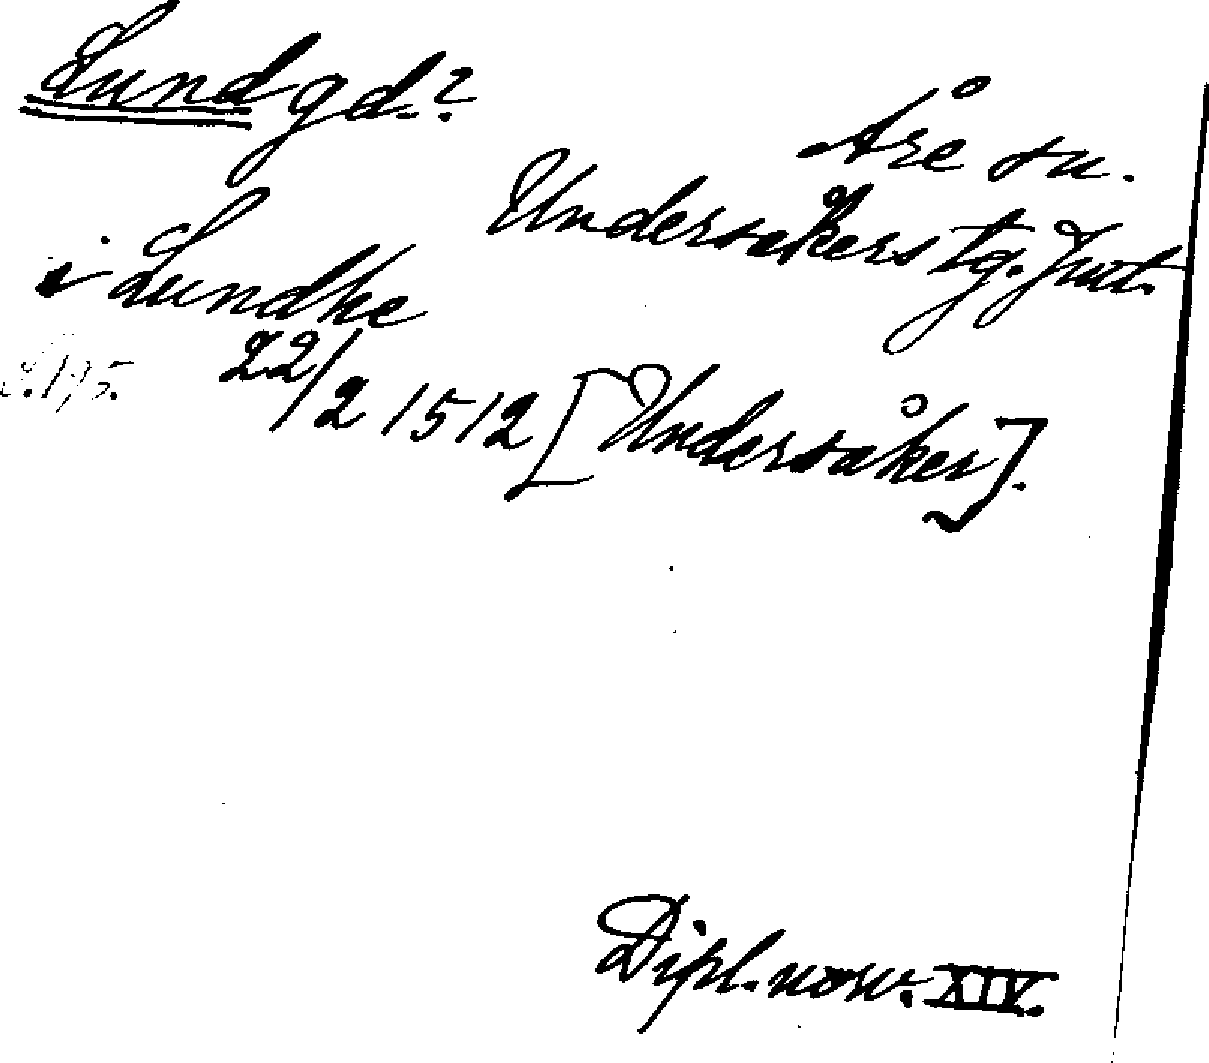 Lund gd.?
Åre sn.
Undersåkers tg. Jmt.
i Lundhe
S. 195.
22/2 1512 [Undersåker].
Dipl. norv. XIV.